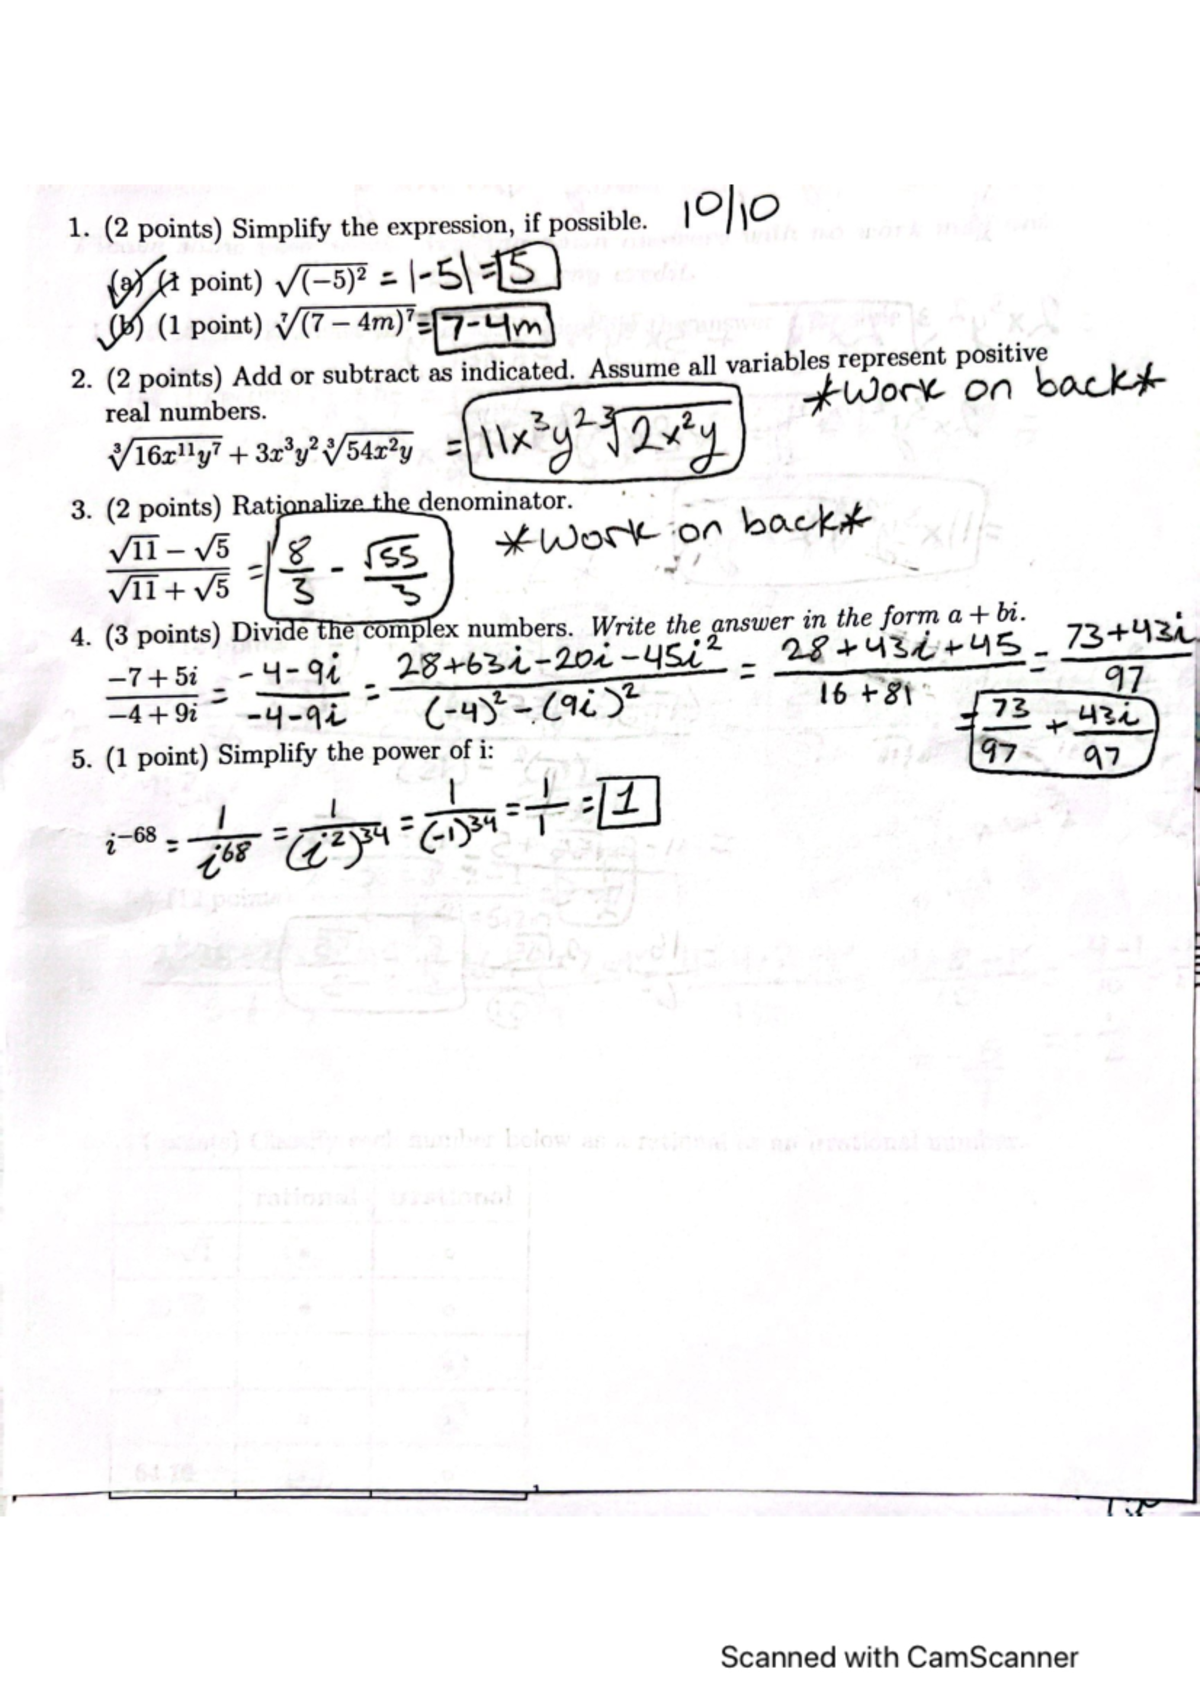 1. (2 points) Simplify the expression, if possible. 10/10
(a) (1 point) √(−5)² = |-5| = 5
(b) (1 point) ⁷√(7 − 4m)⁷ = 7-4m
2. (2 points) Add or subtract as indicated. Assume all variables represent positive
real numbers. *Work on back*
³√16x¹¹y⁷ + 3x³y² ³√54x²y = 11x³y² ³√2x²y
3. (2 points) Rationalize the denominator.
(√11 − √5)/(√11 + √5) = 8/3 - √55/3 *Work on back*
4. (3 points) Divide the complex numbers. Write the answer in the form a + bi.
(−7 + 5i)/(−4 + 9i) = (-4-9i)/(-4-9i) = (28+63i-20i-45i²)/((-4)²-(9i)²) = (28+43i+45)/(16+81) = (73+43i)/97
= 73/97 + 43i/97
5. (1 point) Simplify the power of i:
i⁻⁶⁸ = 1/i⁶⁸ = 1/(i²)³⁴ = 1/(-1)³⁴ = 1/1 = 1
Scanned with CamScanner